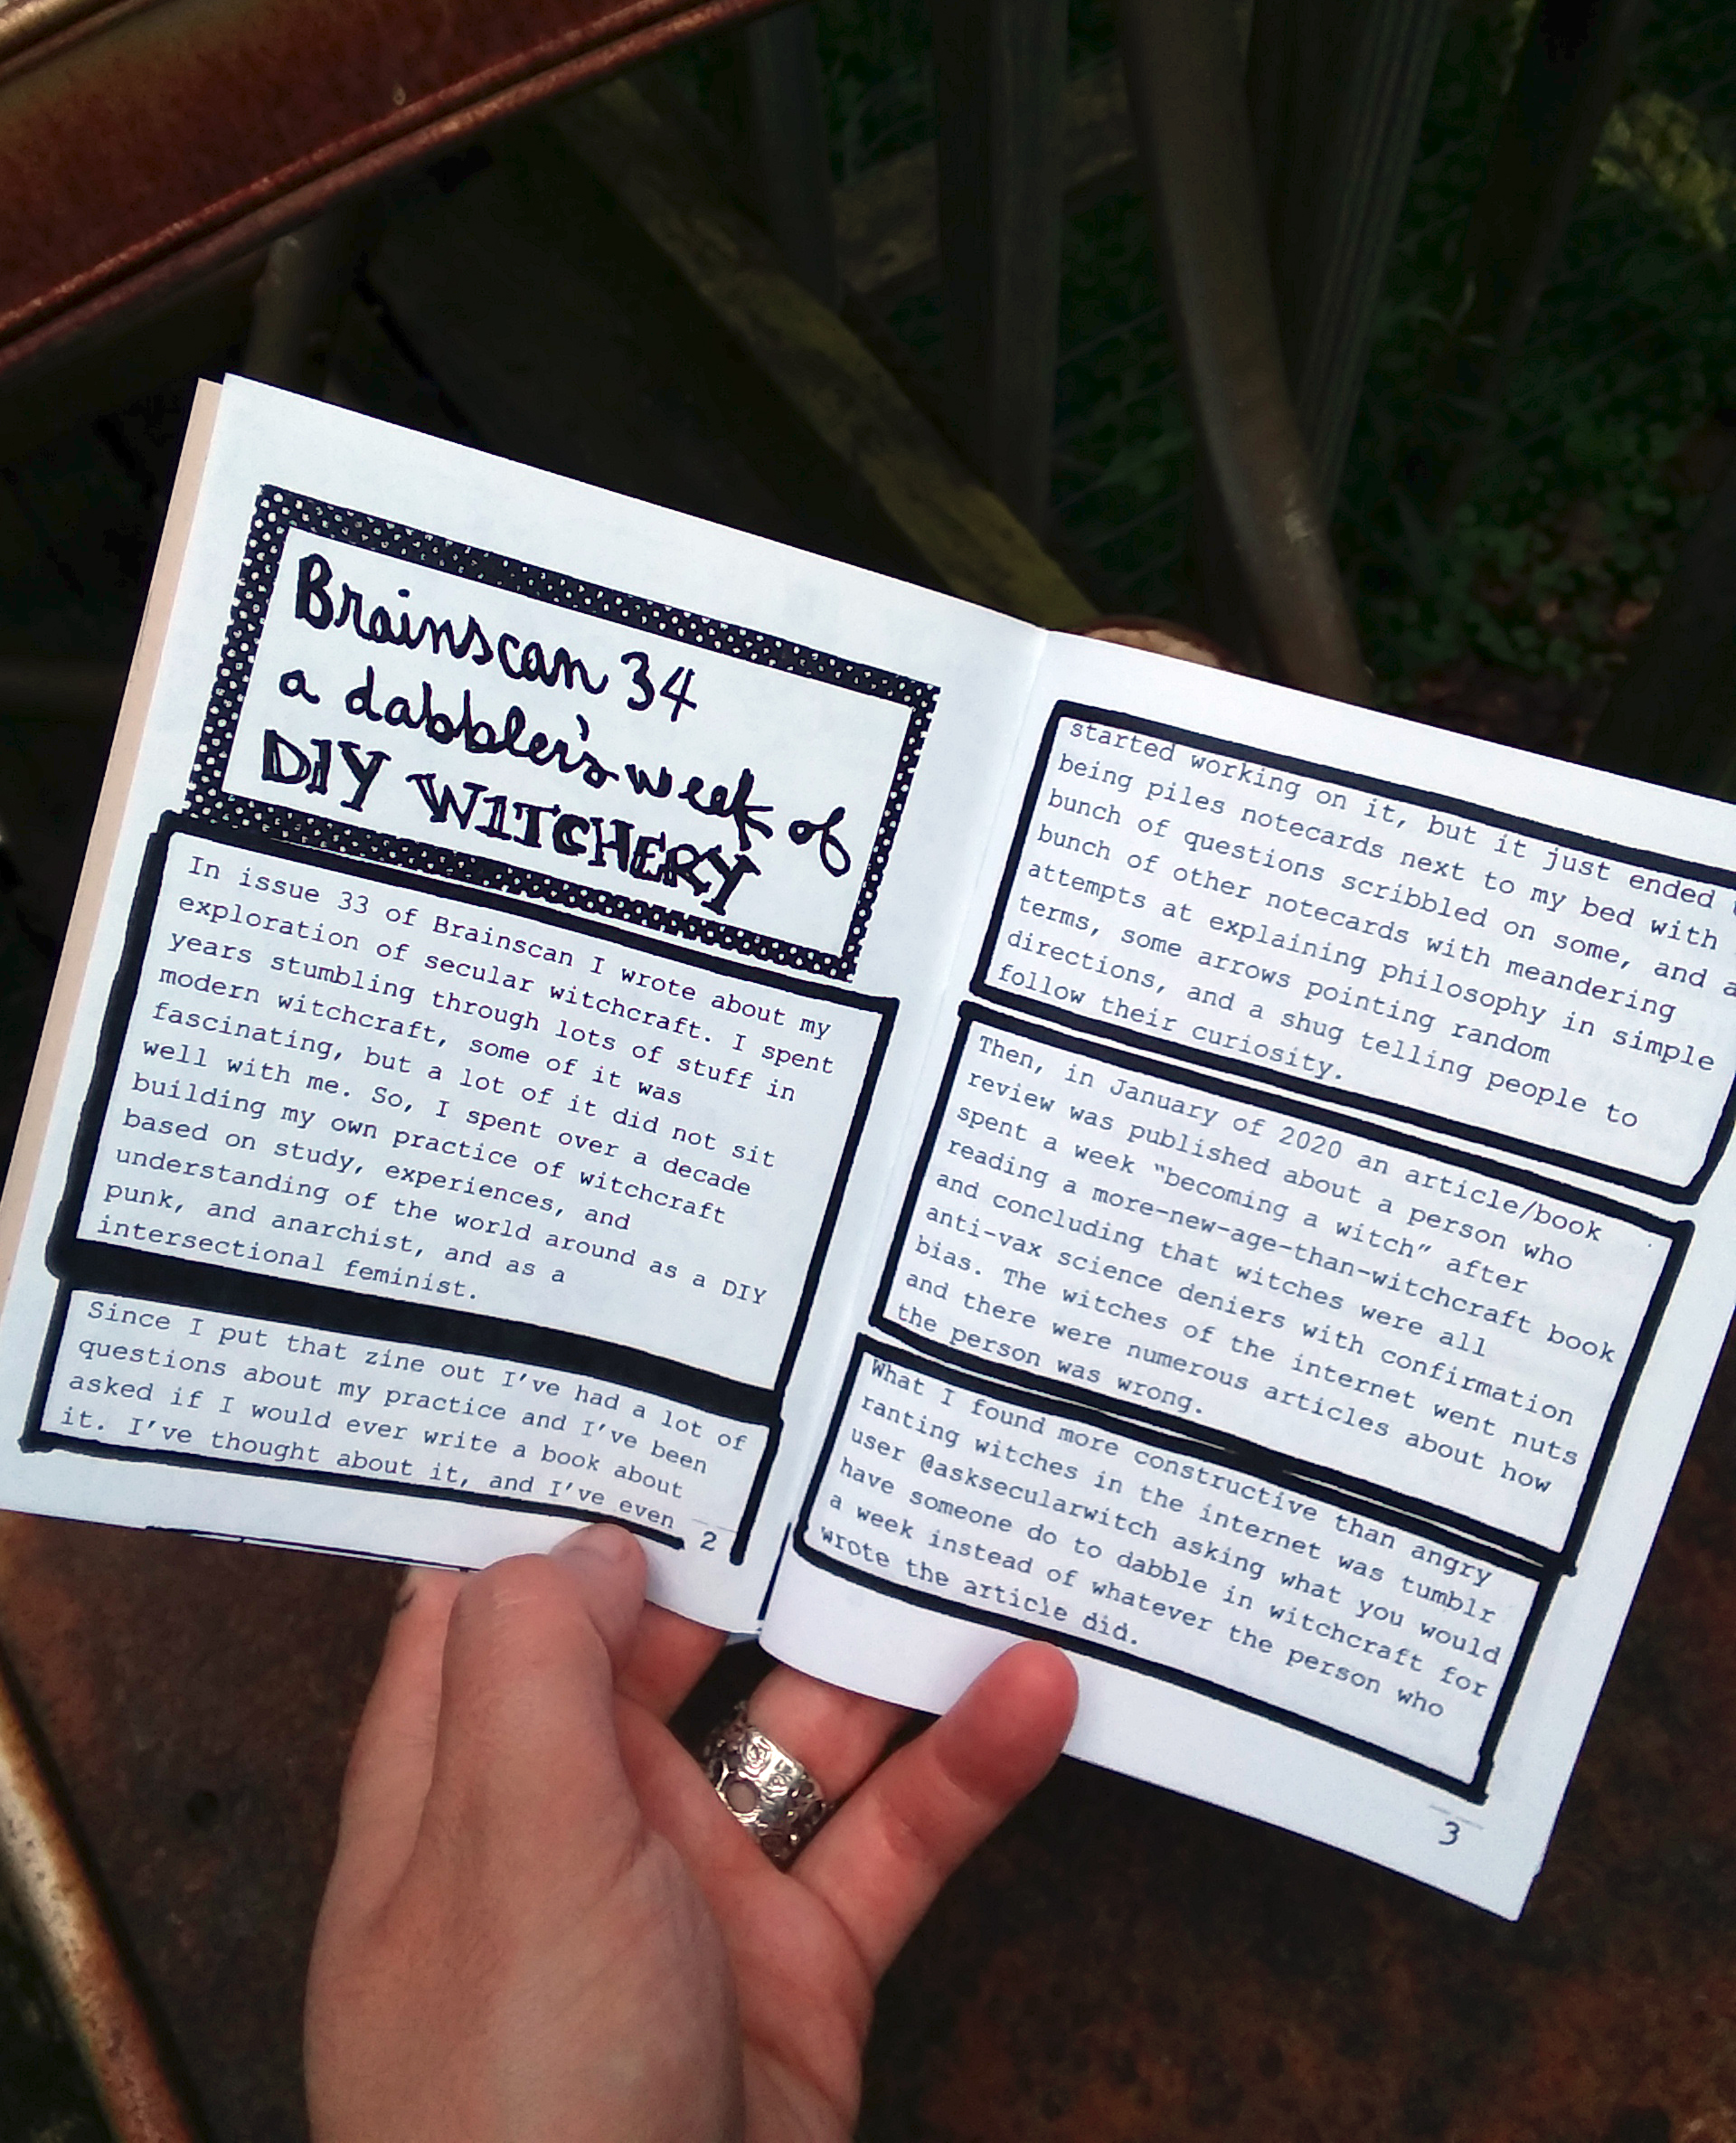 Brainscan 34
a dabbler's week of
DIY WITCHERY
In issue 33 of Brainscan I wrote about my
exploration of secular witchcraft. I spent
years stumbling through lots of stuff in
modern witchcraft, some of it was
fascinating, but a lot of it did not sit
well with me. So, I spent over a decade
building my own practice of witchcraft
based on study, experiences, and
understanding of the world around as a DIY
punk, and anarchist, and as a
intersectional feminist.
Since I put that zine out I've had a lot of
questions about my practice and I've been
asked if I would ever write a book about
it. I've thought about it, and I've even
2
started working on it, but it just ended
being piles notecards next to my bed with
bunch of questions scribbled on some, and a
bunch of other notecards with meandering
attempts at explaining philosophy in simple
terms, some arrows pointing random
directions, and a shug telling people to
follow their curiosity.
Then, in January of 2020 an article/book
review was published about a person who
spent a week "becoming a witch" after
reading a more-new-age-than-witchcraft book
and concluding that witches were all
anti-vax science deniers with confirmation
bias. The witches of the internet went nuts
and there were numerous articles about how
the person was wrong.
What I found more constructive than angry
ranting witches in the internet was tumblr
user @asksecularwitch asking what you would
have someone do to dabble in witchcraft for
a week instead of whatever the person who
wrote the article did.
3